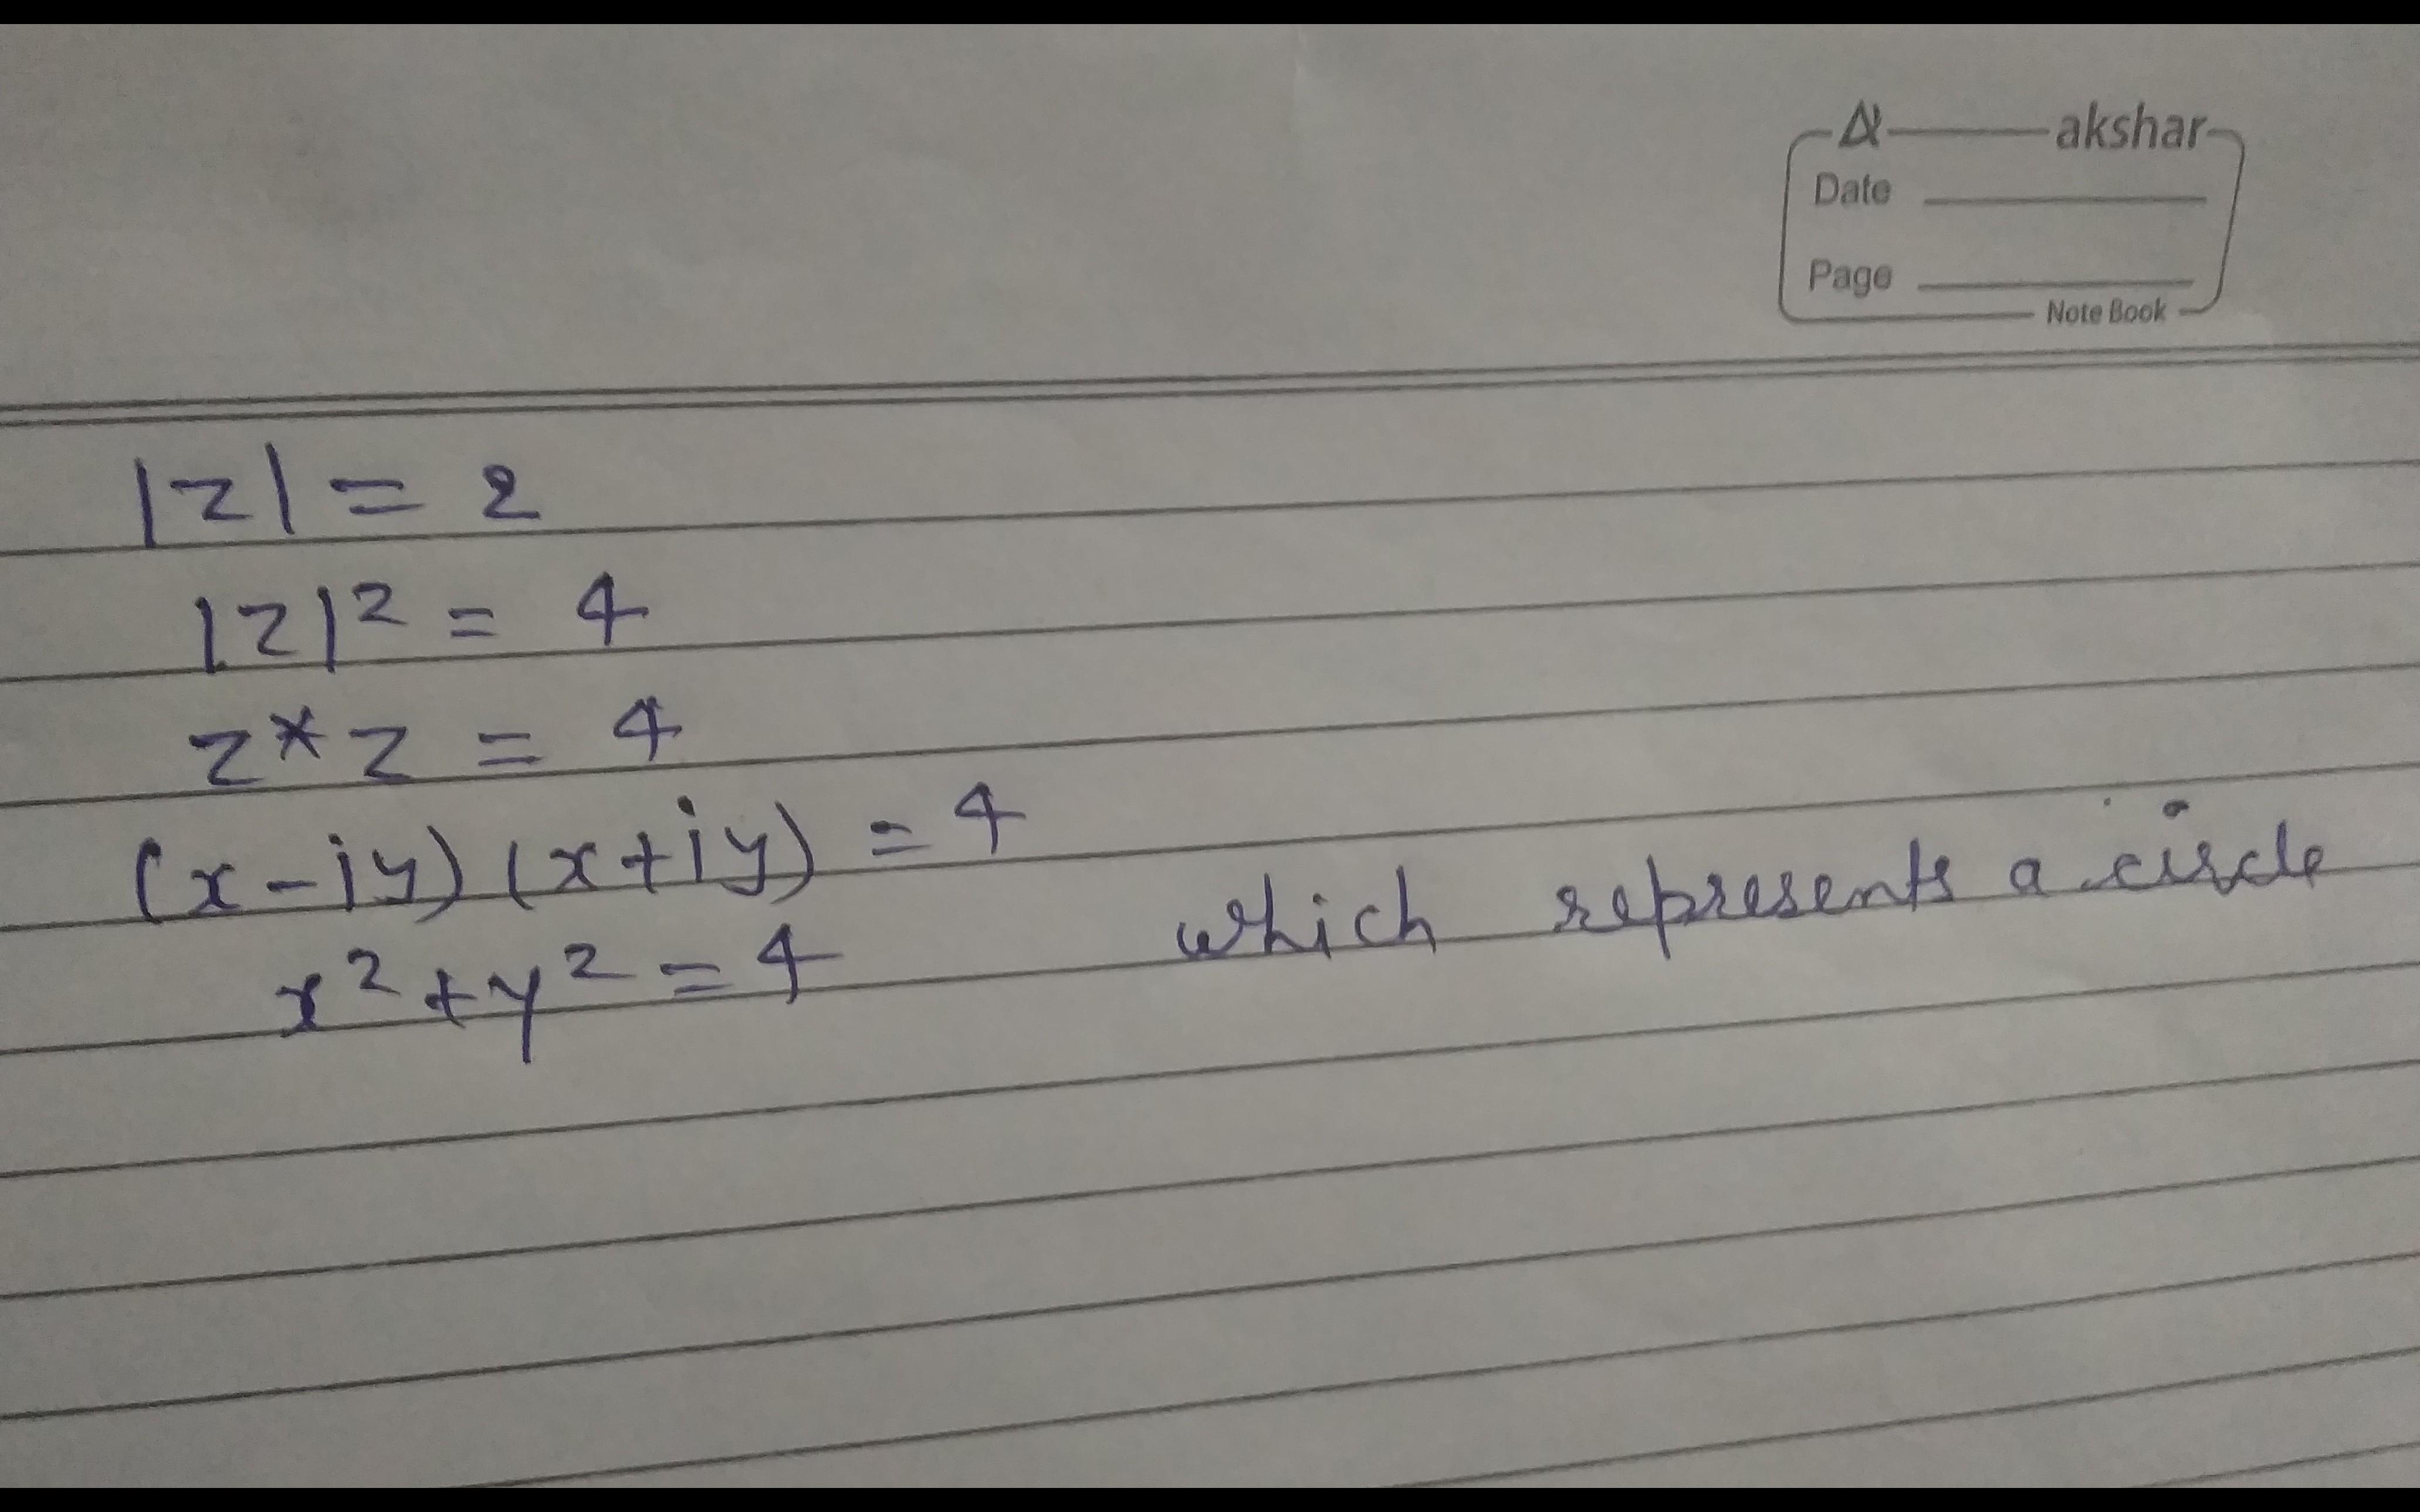 akshar
Date
Page
Note Book
|z| = 2
|z|² = 4
z*z = 4
(x-iy)(x+iy) = 4
x²+y² = 4 which represents a circle